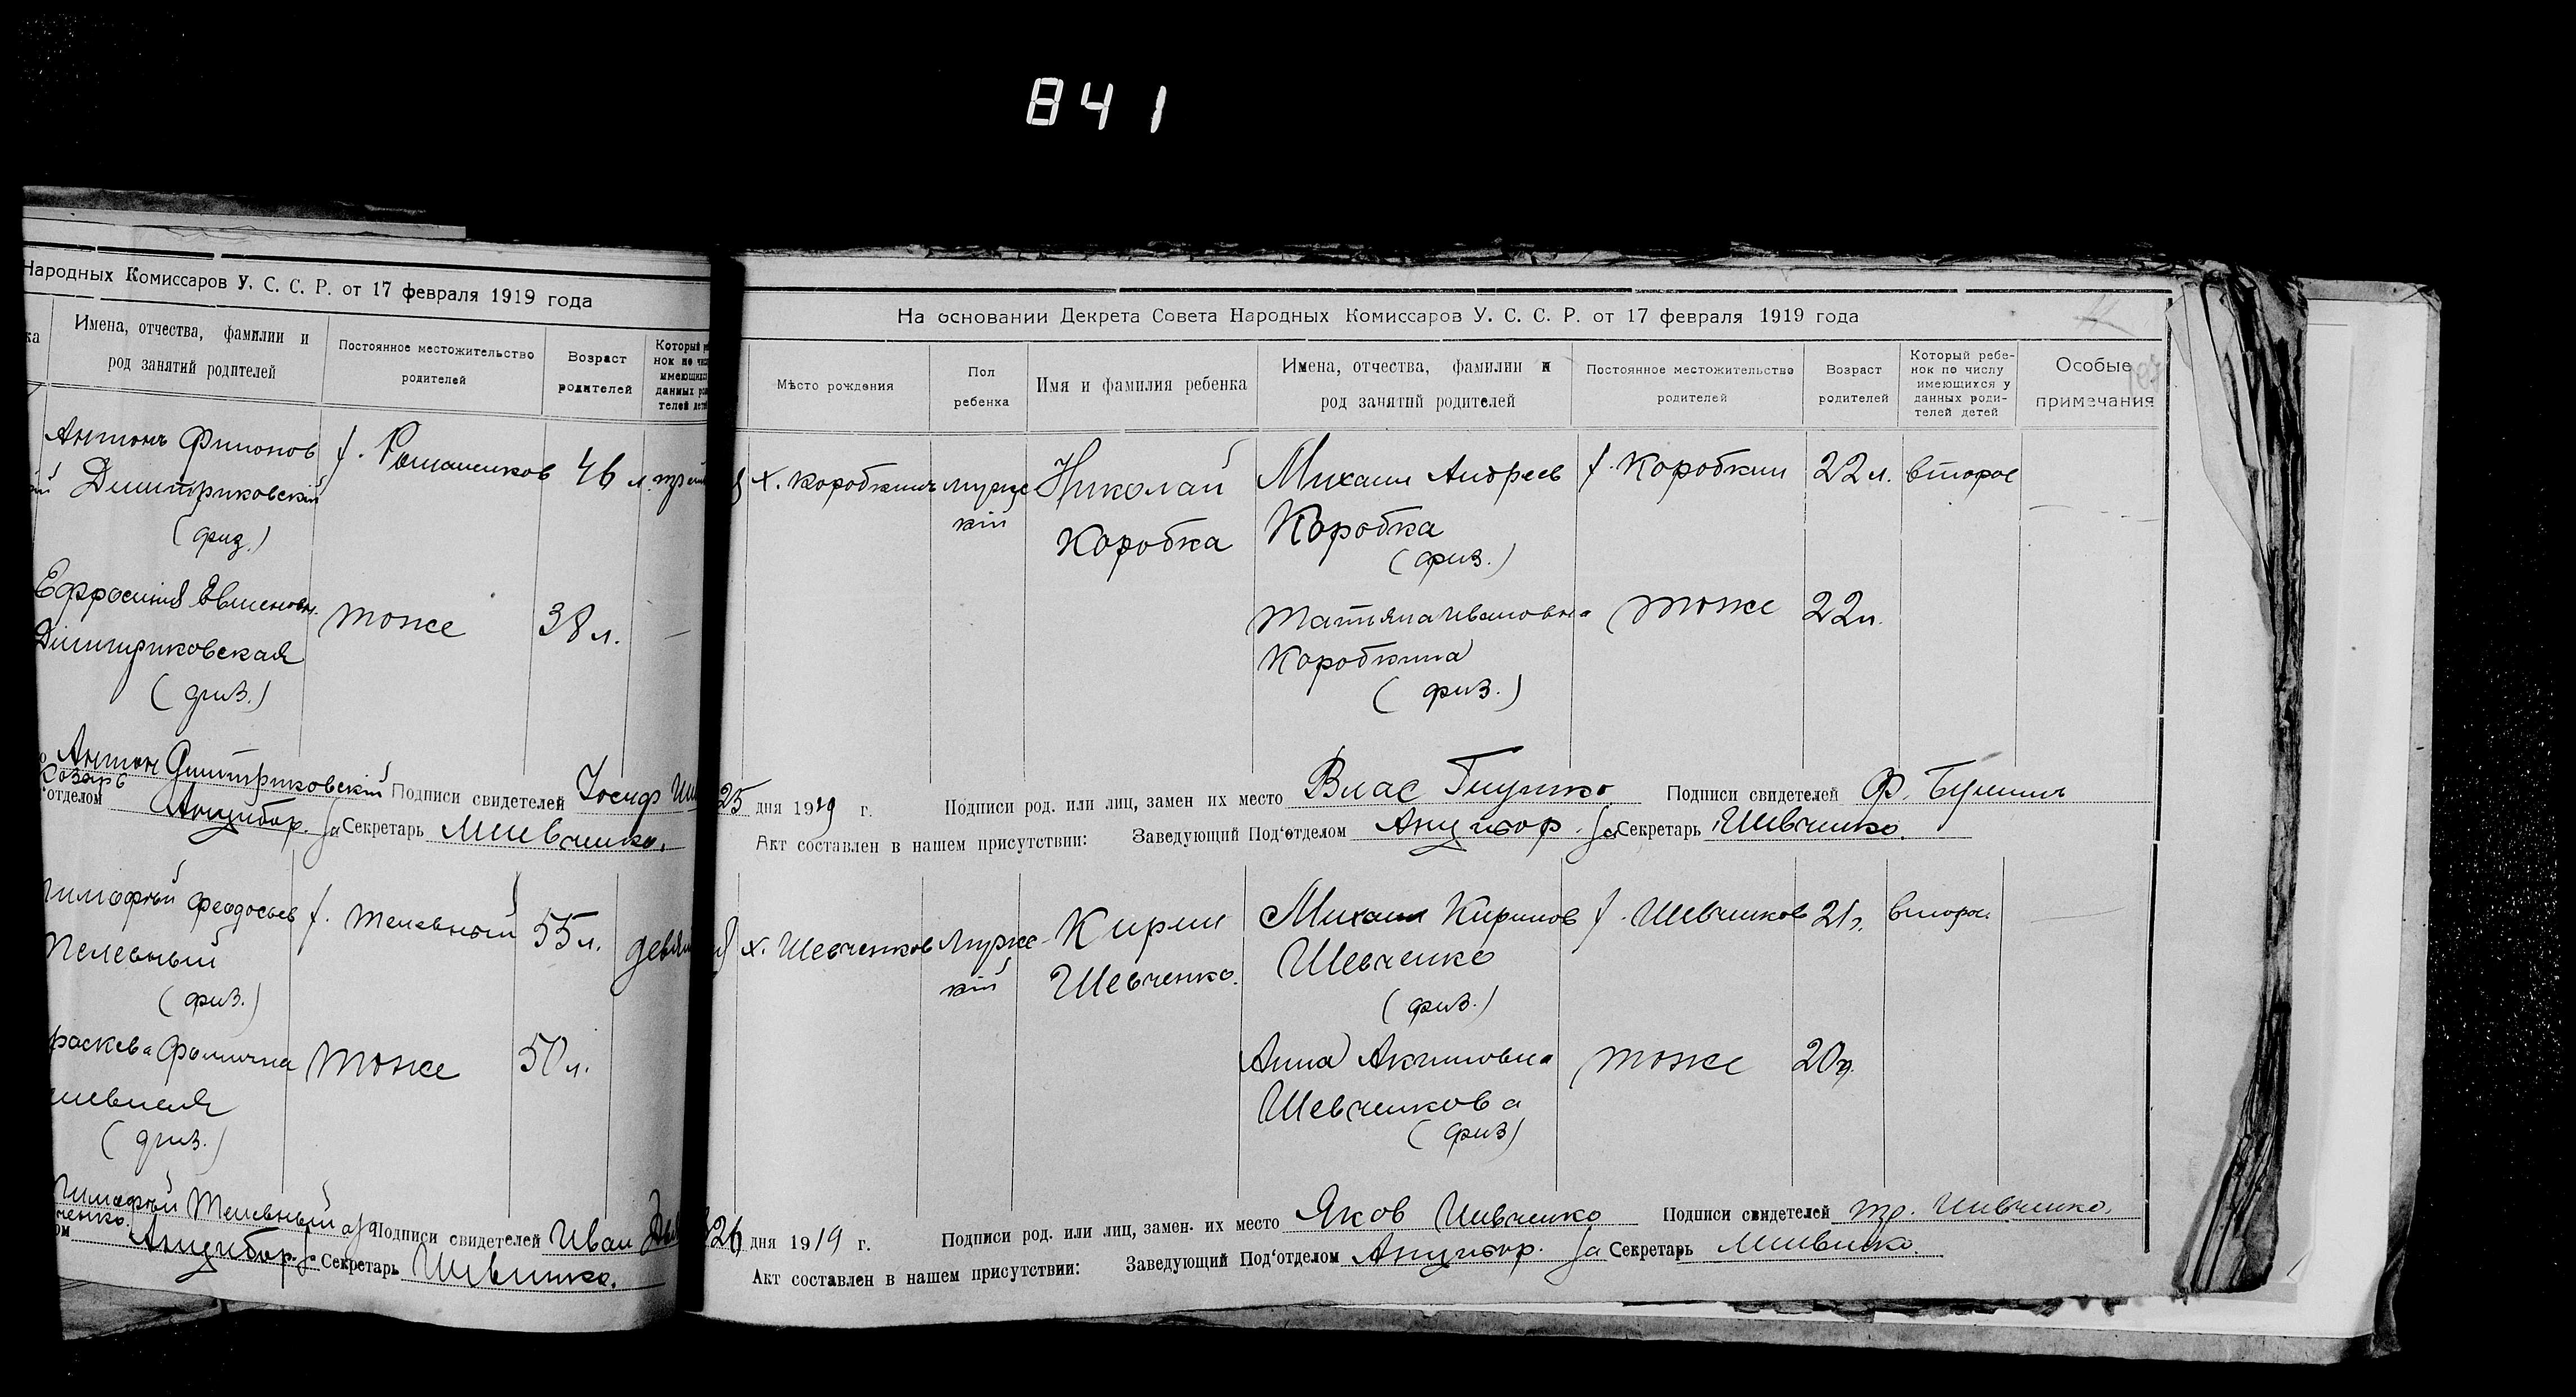 841
Народных Комиссаров У. С. С. Р. от 17 февраля 1919 года
ка
Имена, отчества, фамилии и
род занятий родителей
Постоянное местожительство
родителей
Возраст
родителей
Который
нок по
имеющихся
данных
телей
Антонъ Филонов
Димитриковскій
(физ.)
х. Романенков
46 л.
Ефросинія
Димитриковская
(физ.)
тоже
38 л.
Антон Димитриковскій Подписи свидетелей Іосиф
отделом Анцибор. За Секретарь Шевченко.
Тимофей Феодосьев
Телевный
(физ.)
х. Телевный
55 л.
раскева Фомична
(физ.)
тоже
50 л.
Тимофей Телевный Подписи свидетелей Иван
Анцибор. За Секретарь Шевченко.
На основании Декрета Совета Народных Комиссаров У. С. С. Р. от 17 февраля 1919 года
Мѣсто рождения
Пол
ребенка
Имя и фамилия ребенка
Имена, отчества, фамилии и
род занятий родителей
Постоянное местожительство
родителей
Возраст
родителей
Который ребе-
нок по числу
имеющихся у
данных роди-
телей детей
Особые
примечания
х. Коробкинъ
мужс
кій
Николай
Коробка
Михаил Андреев
Коробка
(физ.)
х. Коробкин
22 л.
второе
Татьяна Ивановна
Коробкина
(физ.)
тоже
22 л.
25 дня 1919 г. Подписи род. или лиц, замен их место Влас Глушко Подписи свидетелей Ф.
Акт составлен в нашем присутствии: Заведующий Под'отделом Анцибор. За Секретарь Шевченко.
х. Шевченков
мужс
кій
Кирил
Шевченко.
Михаил Кирилов
Шевченко
(физ.)
х. Шевченков
21 г.
второе
Анна Акимовна
Шевченкова
(физ)
тоже
20 л.
26 дня 1919 г. Подписи род. или лиц, замен. их место Яков Шевченко Подписи свидетелей Тр. Шевченко.
Акт составлен в нашем присутствии: Заведующий Под'отделом Анцибор. За Секретарь Шевченко.